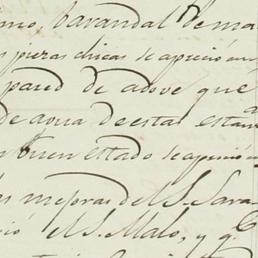 mo, barandal de ma
s piezas chicas se apreció en
pared de adove que
de agua de estas estan
n buen estado se apreció en
as mejoras del S. Sara
ió el S. Malo, y q.